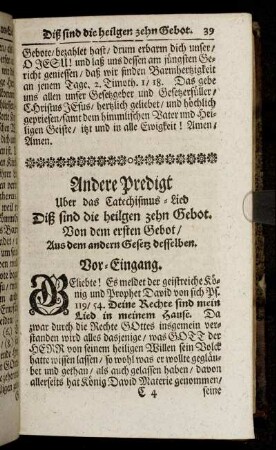 Diß sind die heilgen zehn Gebot. 39
Gebote/ bezahlet hast/ drum erbarm dich unser/
O JESU! und laß uns dessen am jüngsten Ge-
richt geniessen/ daß wir finden Barmhertzigkeit
an jenem Tage. 2. Timoth. 1/ 18. Das gebe
uns allen unser Gesetzgeber und Gesetzerfüller/
Christus JEsus/ hertzlich geliebet/ und höchlich
gepriesen/ samt dem himmlischen Vater und Hei-
ligen Geiste/ itzt und in alle Ewigkeit! Amen/
Amen.
Andere Predigt
Uber das Catechismus-Lied
Diß sind die heilgen zehn Gebot.
Von dem ersten Gebot/
Aus dem andern Gesetz desselben.
Vor-Eingang.
GEliebte! Es meldet der geistreiche Kö-
nig und Prophet David von sich Ps.
119/ 54. Deine Rechte sind mein
Lied in meinem Hause. Da
zwar durch die Rechte GOttes insgemein ver-
standen wird alles dasjenige/ was GOTT der
HERR von seinem heiligen Willen sein Volck
hatte wissen lassen/ so wohl was er wollte gegläu-
bet und gethan/ als auch gelassen haben/ davon
allerseits hat König David Materie genommen/
C 4 seine